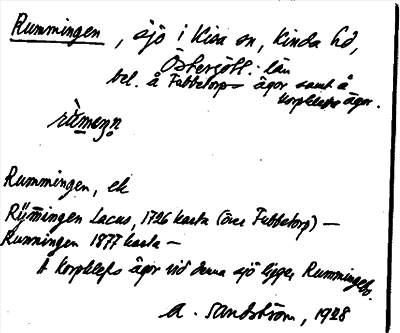 Rummingen, sjö i Kisa sn, Kinda hd,
Östergötl. län
bel. å Fabbetorps ägor samt å
Korpklefs ägor.
rùmeṇn
Rummingen, ek
Rÿm̅ingen Lacus, 1726 karta (över Febbetorp) –
Runningen 1877 karta –
Å Korpklefs ägor vid denna sjö ligger Rummingehs.
A. Sandström, 1928